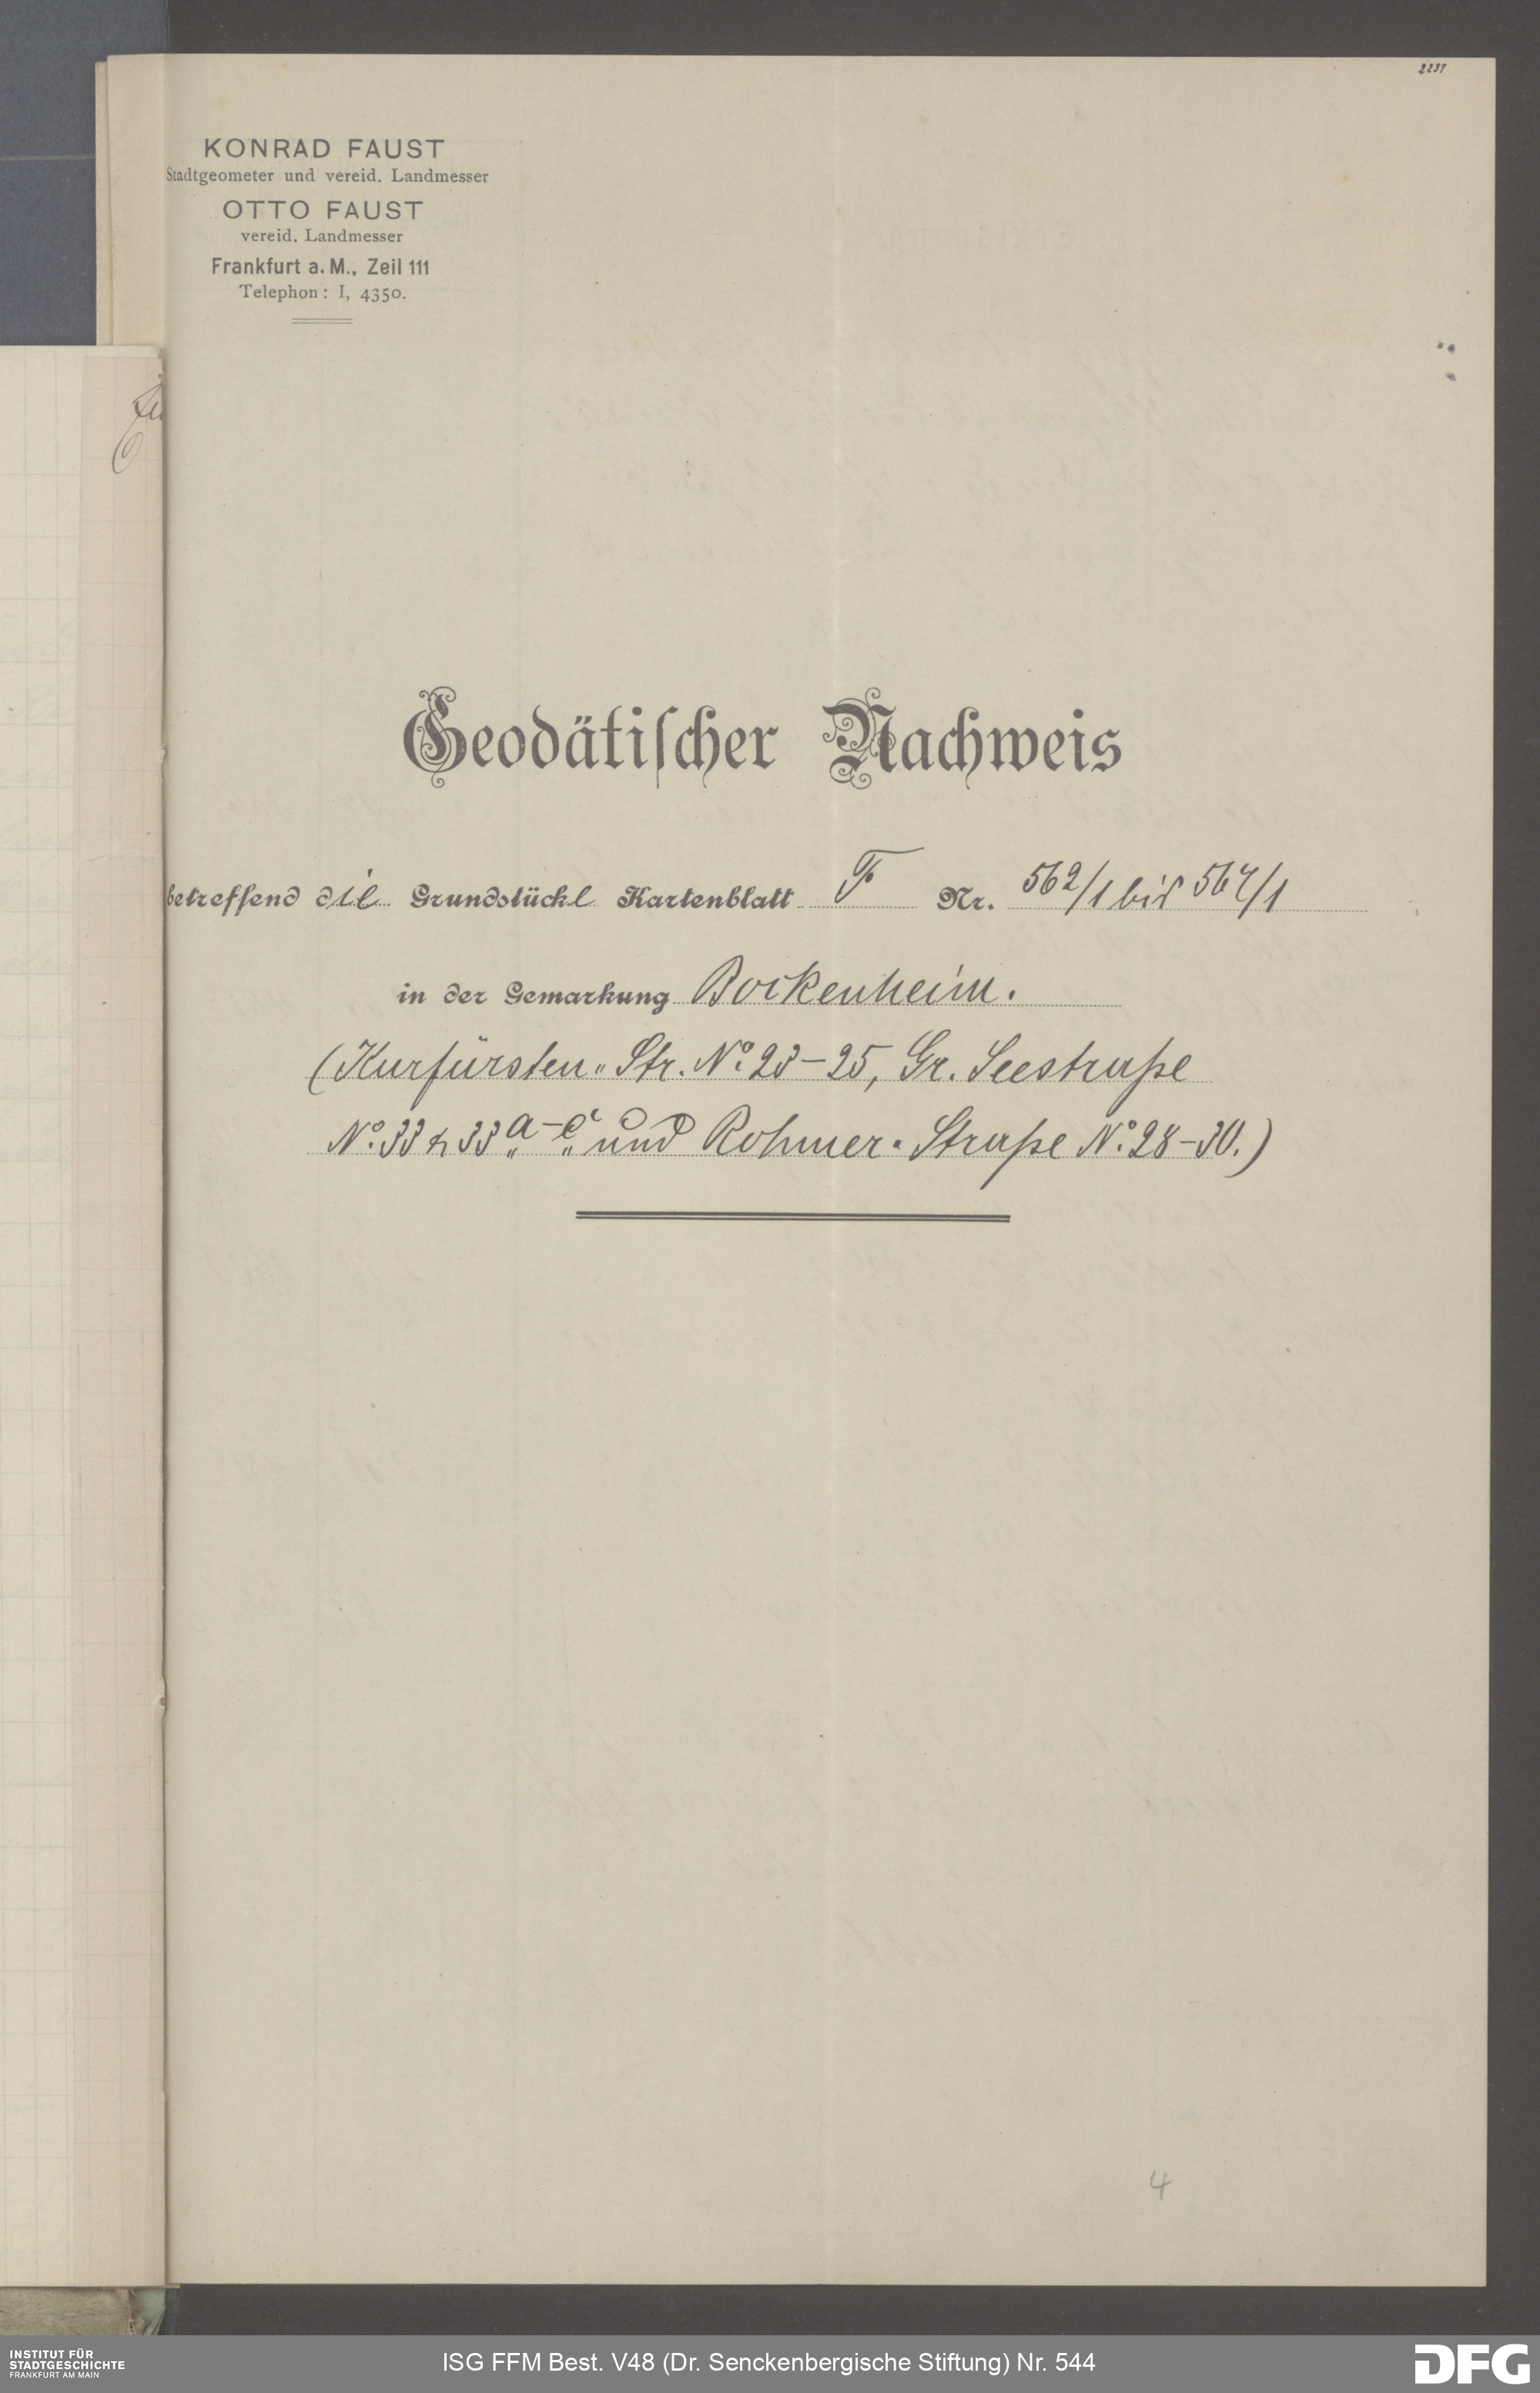 2237
KONRAD FAUST
Stadtgeometer und vereid. Landmesser
OTTO FAUST
vereid. Landmesser
Frankfurt a. M., Zeil 111
Telephon: I, 4350.
Geodätiſcher Nachweis
betreffend die Grundstücke Kartenblatt F Nr. 562/1 bis 567/1
in der Gemarkung Bockenheim.
(Kurfürsten-Str. No. 23-25, Gr. Seestraße
No. 33 & 33 „a-e“ und Rohmer-Straße No. 28-30.)
4
INSTITUT FÜR
STADTGESCHICHTE
FRANKFURT AM MAIN
ISG FFM Best. V48 (Dr. Senckenbergische Stiftung) Nr. 544
DFG